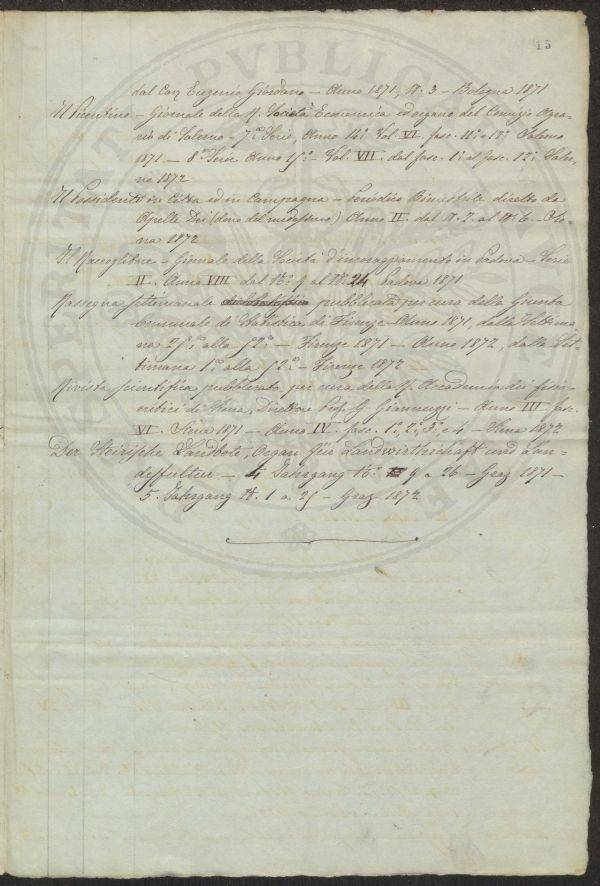 15
dal Cav. Eugenio Giordano – Anno 1871, N.º 3 – Bologna 1871
Il Picentino – Giornale della R. Società Economica ed organo del Comizio Agra-
rio di Salerno – 7.ª Serie, Anno 14º Vol. VI. fasc. 11º e 12º Salerno
1871 – 8ª Serie Anno 15º – Vol. VII. dal fasc. 1º al fasc. 12º Saler-
no 1872
Il Possidente in Città ed in Campagna – Periodico Bimestrale diretto da
Apelle Dei (dono del medesimo) Anno II. dal N.º 2 al N.º 6
1872
Il Raccoglitore – Giornale della Società d'incoraggiamento in Padova – Serie
II – Anno VIII dal N.º 9 al N.º 24 Padova 1871
Rassegna settimanale di statistica pubblicata per cura della Giunta
Comunale di Statistica di Firenze – Anno 1871, dalla Settima-
na 25.ª alla 52.ª – Firenze 1871 – Anno 1872, dalla Set-
timana 1.ª alla 52.ª – Firenze 1872
Rivista scientifica pubblicata per cura della R. Accademia dei fisio-
critici di Siena, Direttore Prof. G. Giannuzzi – Anno III fasc.
VI – Siena 1871 – Anno IV – fasc. 1º, 2º, 3º, e 4 – Siena 1872
Der Steirische Landbote, Organ für Landwirthschaft und Lan-
descultur – 4 Jahrgang N.º 9 a 26 – Graz 1871 –
5. Jahrgang N. 1 a 25 – Graz 1872